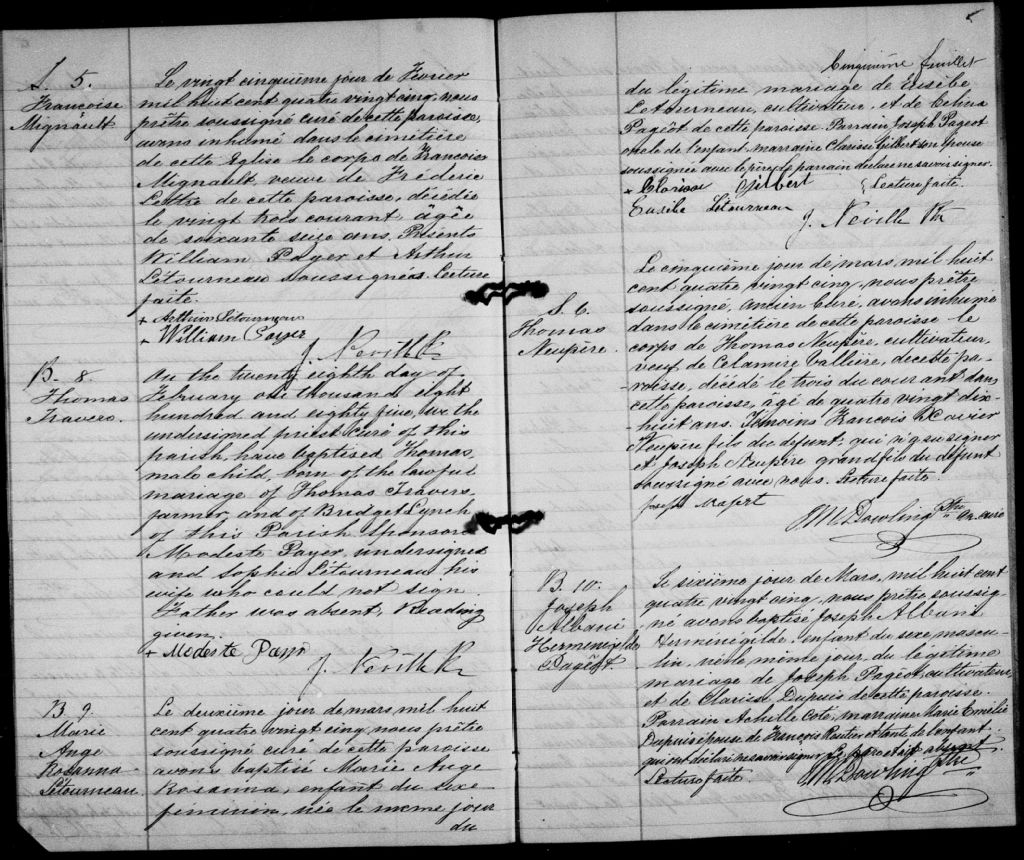 S. 5.
Françoise
Mignault
Le vingt cinquième jour de Février
mil huit cent quatre vingt cinq, nous
prêtre soussigné curé de cette paroisse,
avons inhumé dans le cimetière
de cette Eglise le corps de Françoise
Mignault, veuve de Fréderic
de cette paroisse, décédée
le vingt trois courant âgée
de soixante seize ans. Présents
William Payer et Arthur
Létourneau soussignés. Lecture
faite.
+ Arthur Létourneau
+ William Payer
J. Neville Ptr
B. 8.
Thomas
Travers.
On the twenty eighth day of
February one thousand eight
hundred and eighty five, we the
undersigned priest curé of this
parish, have baptised Thomas,
male child, born of the lawful
mariage of Thomas Travers,
farmer, and of Bridget Lynch
of this Parish Sponsors
Modeste Payer, undersigned
and Sophie Létourneau his
wife who could not sign.
Father was absent, Reading
given.
+ Modeste Payer
J. Neville Ptr
B 9.
Marie
Ange
Rosanna
Létourneau.
Le deuxième jour de mars, mil huit
cent quatre vingt cinq, nous prêtre
soussigné curé de cette paroisse
avons baptisé Marie Ange
Rosanna, enfant du sexe
féminin, née le même jour
du
5
Cinquième feuillet
du légitime mariage de Eusèbe
Letourneau, cultivateur, et de Celina
Pagêot de cette paroisse. Parrain Joseph Pageot
oncle de l'enfant, marraine Clarisse Gilbert son épouse
soussignée avec le père, le parrain déclare ne savoir signer.
+ Clarisse Gilbert Lecture faite.
Eusèbe Létourneau
J. Neville Ptr
S. 6.
Thomas
Neupère.
Le cinquième jour de mars, mil huit
cent quatre vingt cinq, nous prêtre
soussigné, ancien Curé, avons inhumé
dans le cimetière de cette paroisse le
corps de Thomas Neupère, cultivateur,
veuf de Celamire Vallière, de cette pa-
-roisse, décédé le trois du courant dans
cette paroisse, âgé de quatre vingt dix-
huit ans. Témoins François Xavier
Neupère fils du défunt, qui n'a su signer
et Joseph Neupère grand fils du défunt
soussigné avec nous. Lecture faite.
Joseph
M. Dowling Ptre an. curé
B. 10.
Joseph
Albani
Herménégilde
Pagêot.
Le sixième jour de Mars, mil huit cent
quatre vingt cinq, nous prêtre soussig-
né avons baptisé Joseph Albani
Herménégilde enfant du sexe mascu-
lin, né le même jour, du légitime
mariage de Joseph Pagéot, cultivateur
et de Clarisse Dupuis de cette paroisse.
Parrain Achille Coté, marraine Marie Emélie
Dupuis épouse de François Routier et tante de l'enfant,
qui ont déclaré ne savoir signer. Le père était absent.
Lecture faite.
M. Dowling Ptre